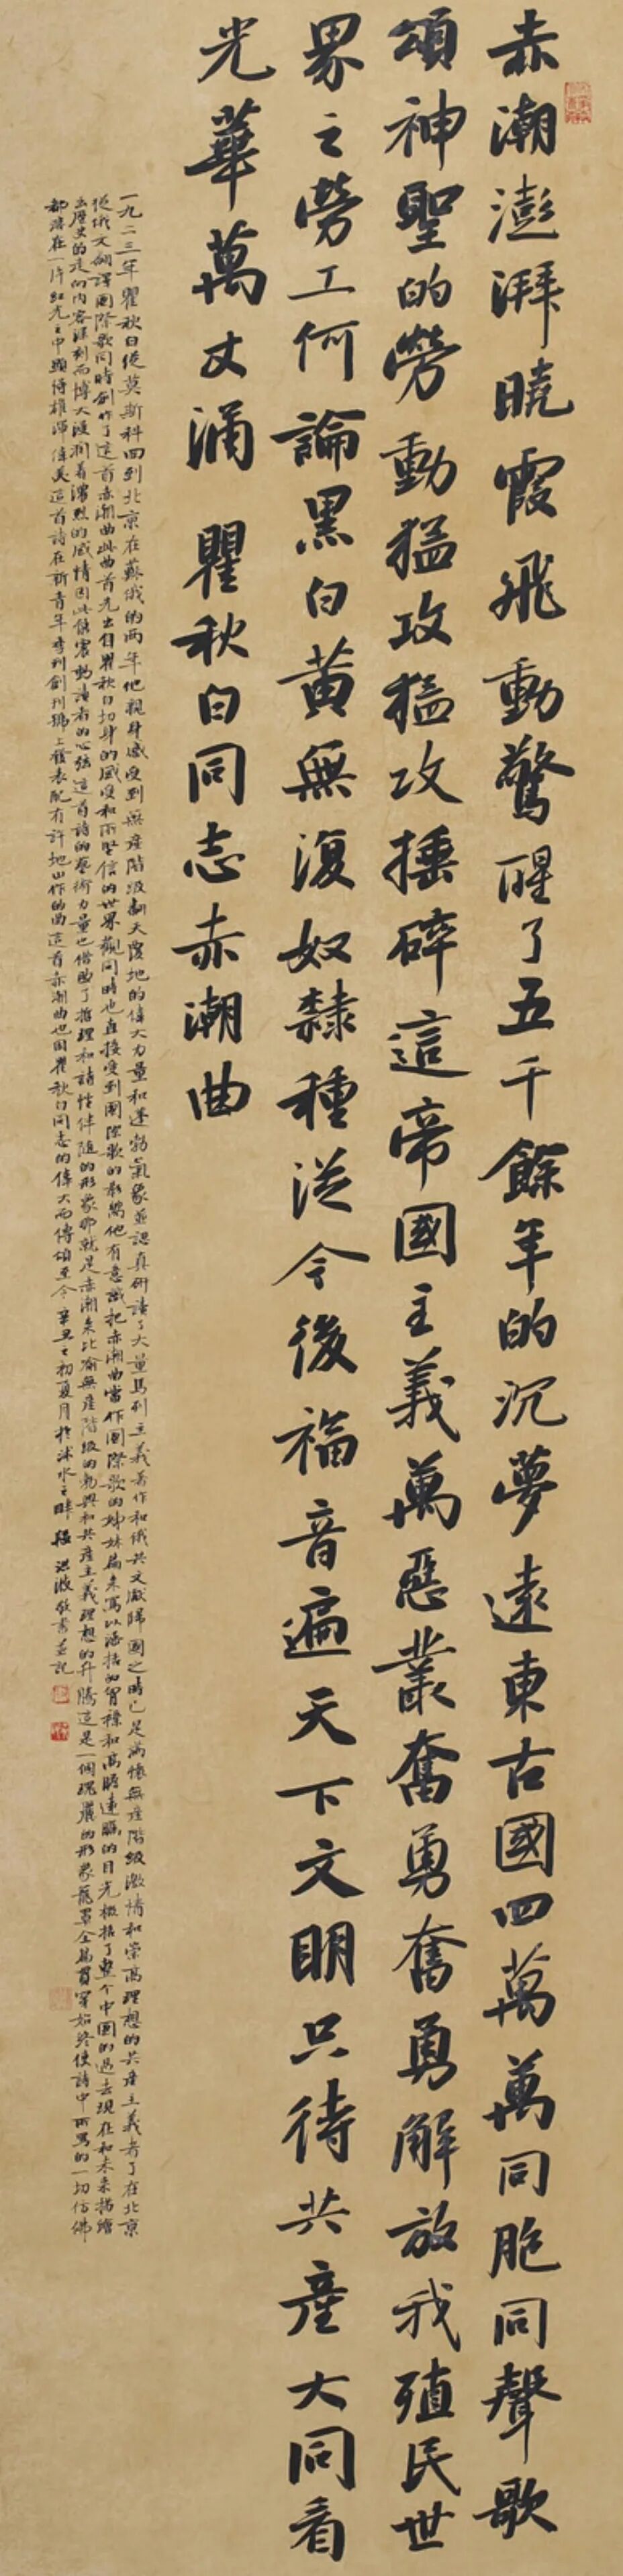 赤潮澎湃曉霞飛動驚醒了五千餘年的沉夢遠東古國四萬萬同胞同聲歌
頌神聖的勞動猛攻猛攻捶碎這帝國主義萬惡叢奮勇奮勇解放我殖民世
界之勞工何論黑白黄無復奴隸種從今後福音遍天下文明只待共產大同看
光華萬丈涌 瞿秋白同志赤潮曲
一九二三年瞿秋白從莫斯科回到北京在蘇俄的兩年他親身感受到無產階級翻天覆地的偉大力量和蓬勃氣象並認真研讀了大量馬列主義著作和俄共文獻歸國之時已是滿懷無產階級激情和崇高理想的共產主義者了在北京
從俄文翻譯國際歌同時創作了這首赤潮曲此曲首先出自瞿秋白切身的感受和所堅信的世界觀同時也直接受到國際歌的影響他有意識把赤潮曲當作國際歌的姊妹篇來寫以浩括的胷襟和高瞻遠矚的目光概括了整个中國的過去現在和未來描繪
出歷史的走向内容深刻而博大浸潤着濃烈的感情因此能震動讀者的心弦這首詩的藝術力量也借助了哲理和詩性伴随的形象那就是赤潮來比喻無產階級的勃興和共產主義理想的升騰這是一個瑰麗的形象籠罩全篇貫穿始終使詩中所寫的一切仿佛
都溶在一片紅光之中顯得雄渾偉美這首詩在新青年季刊創刊號上發表配有許地山作的曲這首赤潮曲也因瞿秋白同志的偉大而傳頌至今辛丑之初夏月於沭水之畔 洪波敬書並記